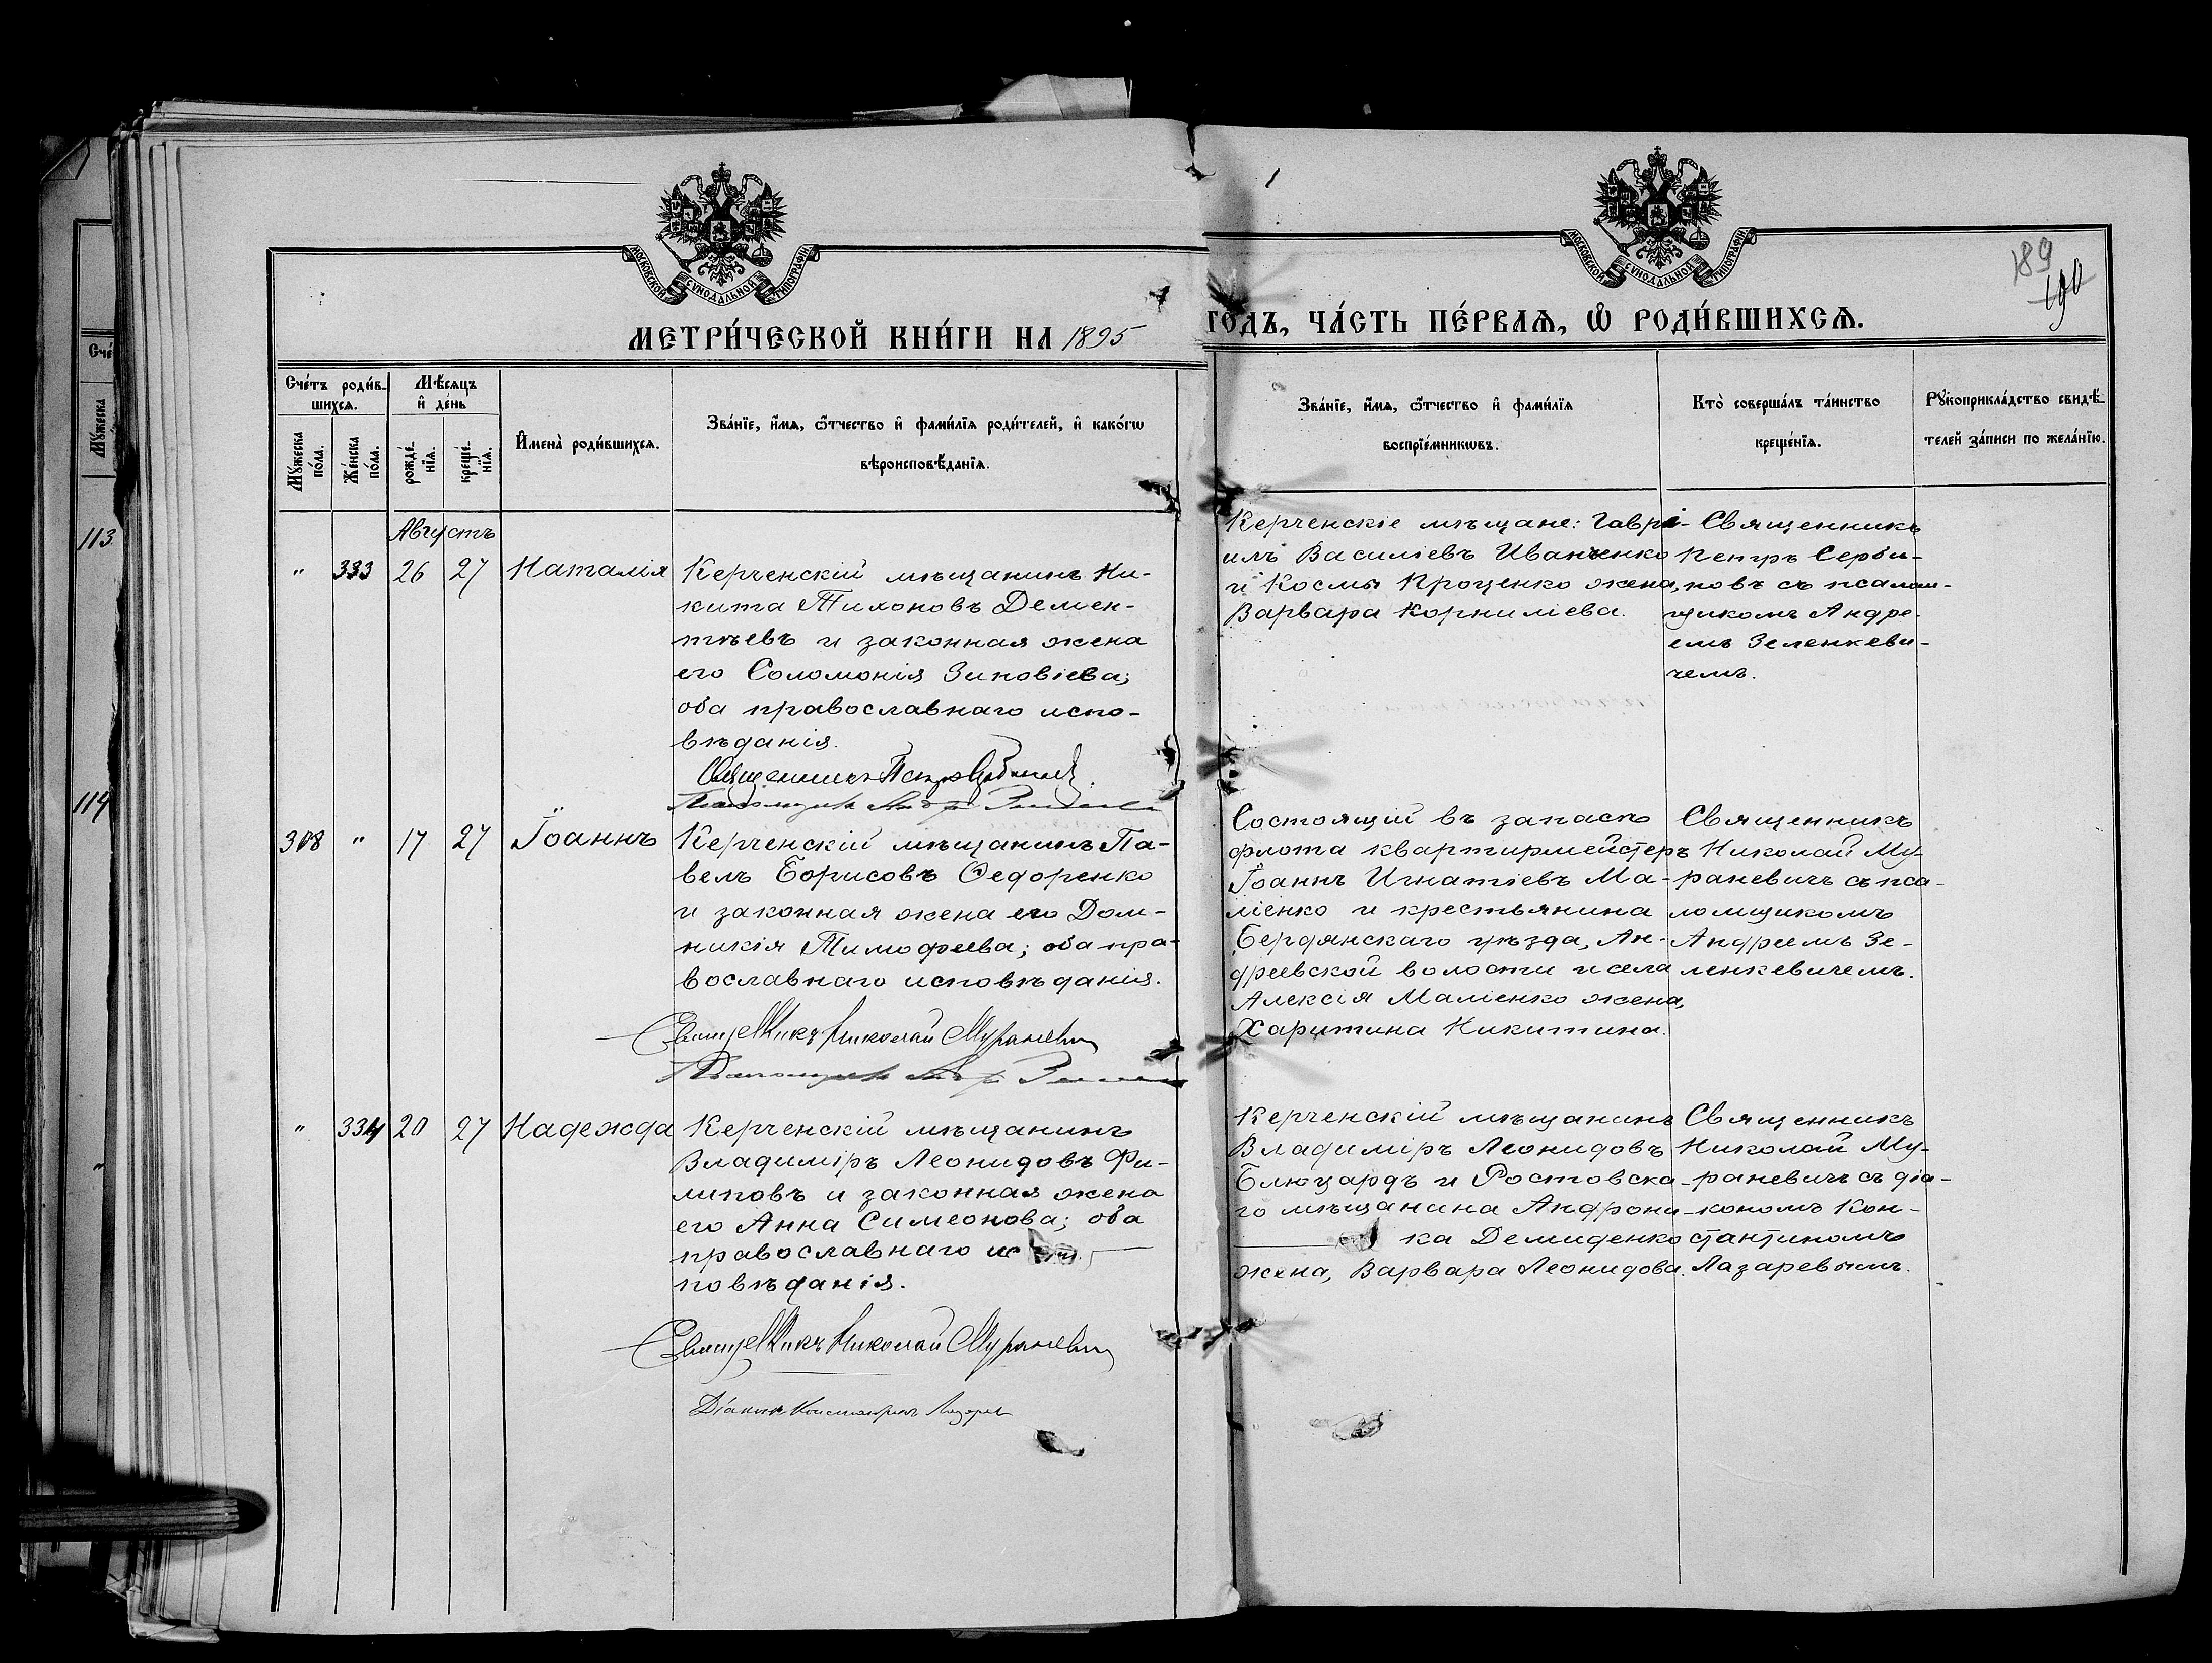 МОСКОВСКОЙ СѴНОДАЛЬНОЙ ТИПОГРАФІИ
МОСКОВСКОЙ СѴНОДАЛЬНОЙ ТИПОГРАФІИ
189
190
МЕТРИ́ЧЕСКОЙ КНИ́ГИ НА 1895 ГОДЪ, ЧА́СТЬ ПЕ́РВАЯ, Ѽ РОДИ́ВШИХСЯ.
Сче́тъ роди́в-
шихся.
Мꙋжеска по́ла.
Же́нска по́ла.
Мѣ́сяцъ
и҆ де́нь
рожде́-
нїѧ.
креще́-
нїѧ.
И҆мена̀ роди́вшихся.
Зва́нїе, и҆́мя, ѻ҆́тчество и҆ фами́лїя роди́телей, и҆ како́гѡ
вѣроисповѣ́данїя.
Зва́нїе, и҆́мя, ѻ҆́тчество и҆ фами́лїя
воспрїе́мникѡвъ.
Кто̀ соверша́лъ та́инство
креще́нїя.
Рꙋкоприкла́дство свидѣ́-
телей за́писи по жела́нїю.
Августъ
" 333 26 27 Наталія
Керченскій мѣщанинъ Ни-
кита Тихоновъ Демен-
тьевъ и законная жена
его Соломонія Зиновіева;
оба православнаго испо-
вѣданія.
Священникъ Петръ Сербиновъ
Псаломщикъ Андр.
Керченскіе мѣщане: Гаврі-
илъ Василіевъ Иванченко
и Космы Проценко жена,
Варвара Корнилiева.
Священникъ
Петръ Серби-
новъ съ псалом-
щикомъ Андре-
емъ Зеленкеви-
чемъ.
308 " 17 27 Іоаннъ
Керченскій мѣщанинъ Па-
велъ Борисовъ Ѳедоренко
и законная жена его Дом-
никія Тимофеева; оба пра-
вославнаго исповѣданія.
Священникъ Николай Мураневичъ
Псаломщикъ Андр.
Состоящій въ запасѣ
флота квартирмейстеръ
Іоаннъ Игнатіевъ Ма-
ліенко и крестьянина
Бердянскаго уѣзда, Ан-
дреевской волости и села
Алексія Маліенко жена,
Харитина Никитина.
Священникъ
Николай Му-
раневичъ съ пса-
ломщикомъ
Андреемъ Зе-
ленкевичемъ.
" 334 20 27 Надежда
Керченскій мѣщанинъ
Владиміръ Леонидовъ Фи-
липовъ и законная жена
его Анна Симеонова; оба
православнаго ис-
повѣданія.
Священникъ Николай Мураневичъ
Діаконъ Константинъ Лазаревъ
Керченскій мѣщанинъ
Владиміръ Леонидовъ
Блюцардъ и Ростовска-
го мѣщанина Андрони-
ка Демиденко
жена, Варвара Леонидова.
Священникъ
Николай Му-
раневичъ съ діа-
кономъ Кон-
стантиномъ
Лазаревымъ.
113
114